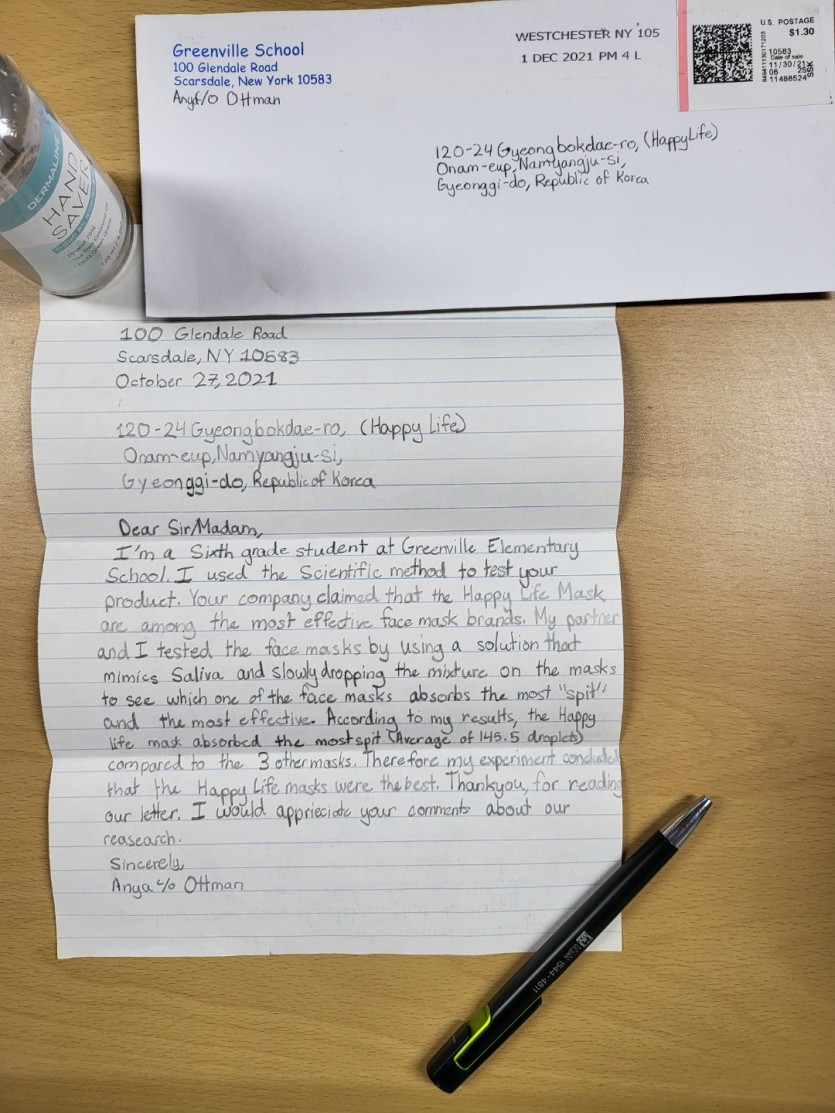 Greenville School
100 Glendale Road
Scarsdale, New York 10583
Ottman
WESTCHESTER NY 105
1 DEC 2021 PM 4 L
U.S. POSTAGE
$1.30
10583
Date of sale
11/30/21
06 2S
11486524
SSK
120-24 Gyeongbokdae-ro, (Happy Life)
Onam-eup, Namyangju-si,
Gyeonggi-do, Republic of Korea
DERMALINE
HAND
SAVER
100 Glendale Road
Scarsdale, NY 10583
October 27, 2021
120-24 Gyeongbokdae-ro, (Happy Life)
Onam-eup, Namyangju-si,
Gyeonggi-do, Republic of Korea
Dear Sir/Madam,
I'm a Sixth grade student at Greenville Elementary
School. I used the Scientific method to test your
product. Your company claimed that the Happy Life Mask
are among the most effective face mask brands. My partner
and I tested the face masks by using a solution that
mimics Saliva and slowly dropping the mixture on the masks
to see which one of the face masks absorbs the most "spit"
and the most effective. According to my results, the Happy
life mask absorbed the most spit (Average of 145.5 droplets)
compared to the 3 other masks. Therefore my experiment concluded
that the Happy Life masks were the best. Thankyou, for reading
our letter. I would apprieciate your comments about our
reasearch.
Sincerely,
Anya c/o Ottman
1544-4811